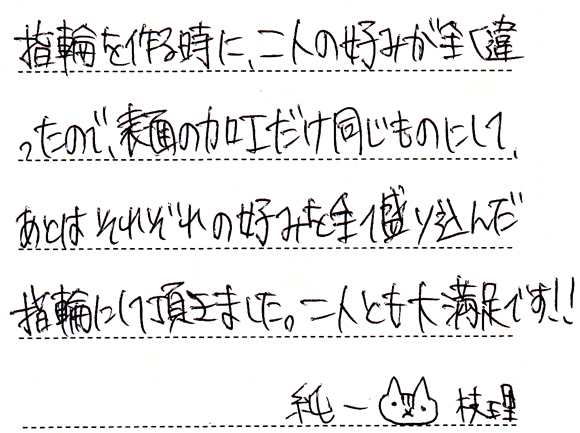 指輪を作る時に、二人の好みが全く違
ったので、表面の加工だけ同じものにして、
あとはそれぞれの好みを全て盛り込んだ
指輪にして頂きました。二人とも大満足です!!
純一 枝理